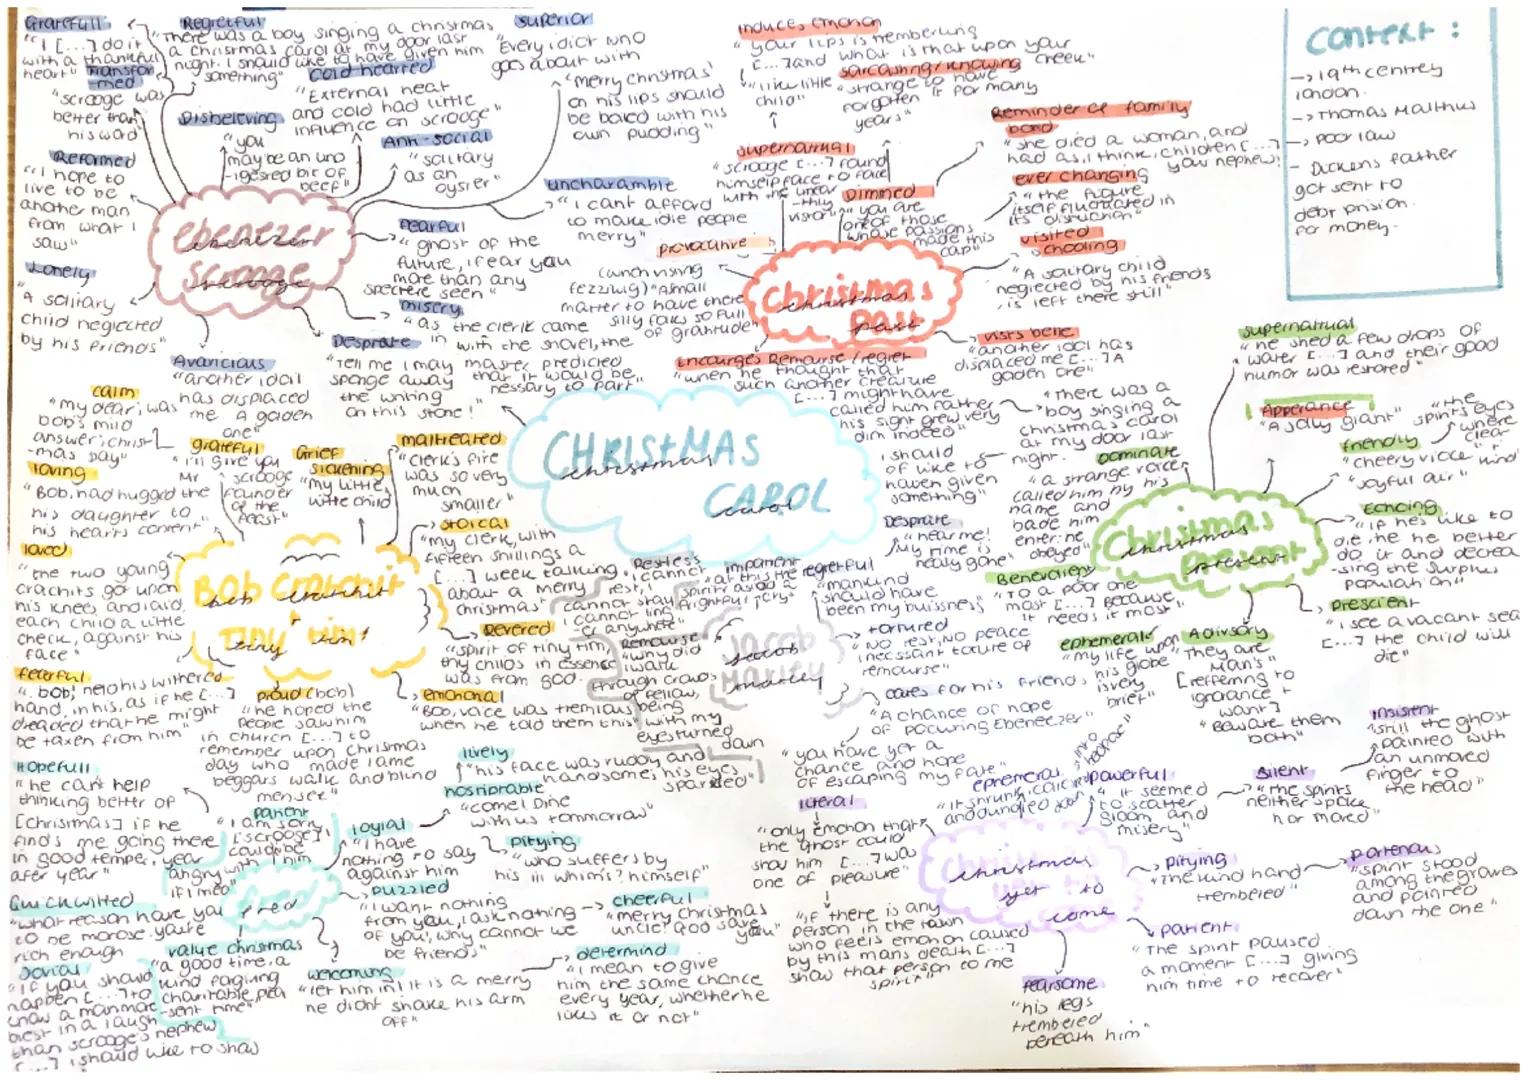 Gratefull
"I [...] do it
with a thankful
heart"
Transfor
-med
"scrooge was
better than
his word"
Reformed
"I hope to
live to be
another man
from what I
saw"
Lonely
"A solitary
child neglected
by his friends"
Regretful
"There was a boy singing a christmas
a christmas carol at my door last
night. I should like to have given him
something"
Disbelieving
"you
may be an und
-igested bit of
beef"
cold hearted
"External heat
and cold had little
influence on scrooge"
Anti-social
"solitary
as an
oyster"
superior
"Every idiot who
goes about with
'merry christmas'
on his lips should
be boiled with his
own pudding"
uncharitable
"I cant afford
to make idle people
merry"
ebenezer
scrooge
Fearful
"ghost of the
future, I fear you
more than any
spectre seen"
misery
"as the clerk came
in with the shovel, the
master predicted
that it would be
nessary to part"
Desprate
"Tell me I may
sponge away
the writing
on this stone!"
Avaricious
"another idol
has displaced
me A golden
one"
induces emotion
"your lips is trembling
[...] and what is that upon your
cheek"
"like little
child"
sarcastic/knowing
"strange to have
forgotten it for many
years"
supernatural
"scrooge [...] found
himself face to face
with the unear
-thly
visitor"
Dimmed
"you are
one of those
whose passions
made this
cap"
Reminder of family
bond
"she died a woman, and
had as, I think, children [...]
your nephew!
ever changing
"the figure
itself fluctuated in
its distinction"
visited
schooling
"A solitary child
neglected by his friends
is left there still"
visits belle
"another idol has
displaced me [...] A
golden one"
provocative
(when visiting
fezziwig) "A small
matter to have these
silly folks so full
of gratitude"
Encourges Remourse/regret
"when he thought that
such another creature
[...] might have
called him father
his sight grew very
dim indeed"
"There was a
boy singing a
christmas carol
at my door last
night.
I should
of like to
haven given
something"
christmas
past
Context:
-> 19th centrey
london.
-> Thomas Malthus
-> Poor law
- Dickens father
got sent to
debt prision.
for money.
CHRISTMAS
CAROL
calm
"my dear; was
bob's mild
answer; christ
-mas day"
grateful
"I'll give you
Mr
scrooge
founder
of the
feast"
Grief
sickening
"my little,
little child
maltreated
"clerk's fire
was so very
much
smaller"
stoical
"my clerk, with
fifteen shillings a
[...] week talking
about a merry
christmas"
Revered
"spirit of tiny tim,
thy childs in essence
was from god.
emotional
"Bob, voice was tremlous
when he told them this"
proud (bob)
"he hoped the
people saw him
in church [...] to
remember upon christmas
day who made lame
beggars walk and blind
men see"
loving
"Bob, had hugged the
his daughter to
his hearts content"
loved
"the two young
crachits got upon
his knees, and laid,
each child a little
cheek, against his
face"
fearful
"bob, held his withered
hand, in his, as if he [...]
dreaded that he might
be taken from him"
BOB Cratchit
+
Tiny tim!
Restless
"I cannot
rest, I
cannot stay,
I cannot ling
-er anywhere"
impatient
"at this the
spirit raised a
frightful cry"
regretful
"mankind
should have
been my buissness"
Desprate
"hear me!
My time is
nealy gone"
tortured
"no rest, NO peace
incessant torture of
remourse"
cares for his friend
"A chance of hope
of pocuring Ebenezer"
"you have yet a
chance and hope
of escaping my fate"
Remourse
"why did
I walk
through crowds
of fellow,
being
with my
eyes turned
down
Jacob
Marley
supernatrual
"he shed a few drops of
water [...] and their good
humor was restored"
Apperance
"A jolly giant"
"the
spirits eyes
where
clear
+
kind
friendly
"cheery vioce"
"joyful air"
Echoing
"if he's like to
die, he he better
do it and decrea
-sing the surplus
population"
prescient
"I see a vacant seat
[...] the child will
die"
Advisory
"They are
Man's"
[reffering to
ignorance +
want]
"Beware them
both"
ephemeral
"my life upon
his globe
is very
brief"
Benevolient
"to a poor one
most [...] because
it needs it most"
dominate
"a strange voice
called him by his
name and
bade him
enter: he
obeyed"
Christmas
present
Hopefull
"he can't help
thinking better of
[Christmas] if he
finds me going there
in good temper, year
after year"
patient
"I am sorry
[scrooge],
I could be
angry with him
if I tried"
Quick witted
"what reason have you
to be morose. you're
rich enough
Jovial
"if you should
happen [...] to
know a man more
blest in a laugh
than scrooge's nephew
[...] I should like to shas
value christmas
"a good time, a
kind forgiving
charitable, plea
-sent time"
welcoming
"let him in! it is a merry
he didnt shake his arm
off"
puzzled
"I want nothing
from you, I ask nothing
of you; why cannot we
be friends"
cheerful
"merry christmas
uncle! God save
you"
determind
"I mean to give
him the same chance
every year, whether he
likes it or not"
pitying
"who suffers by
his ill whim's? himself"
loyial
"I have
nothing to say
against him
hostiprable
"come! Dine
with us tommorrow"
lively
"his face was ruddy and
handsome; his eyes
sparkled"
fred
literal
"only emotion that
the Ghost could
show him [...] was
one of pleasure"
"if there is any
person in the town
who feels emotion caused
by this mans death [...]
show that person to me
spirit"
ephemeral
"it shrunk,
and
down
into
a
bedpost"
powerful
"it seemed
to scatter
gloom and
misery"
Silent
"the spirits
neither spoke
nor moved"
insistent
"still the ghost
pointed with
an unmoved
finger to
the head"
pitying
"The kind hand
trembeled"
portenous
"spirit stood
among the graves
and pointed
down the one"
patient
"The spirit paused
a moment [...] giving
him time to recover"
fearsome
"his legs
trembeled
beneath him"
Christmas
yet to
come